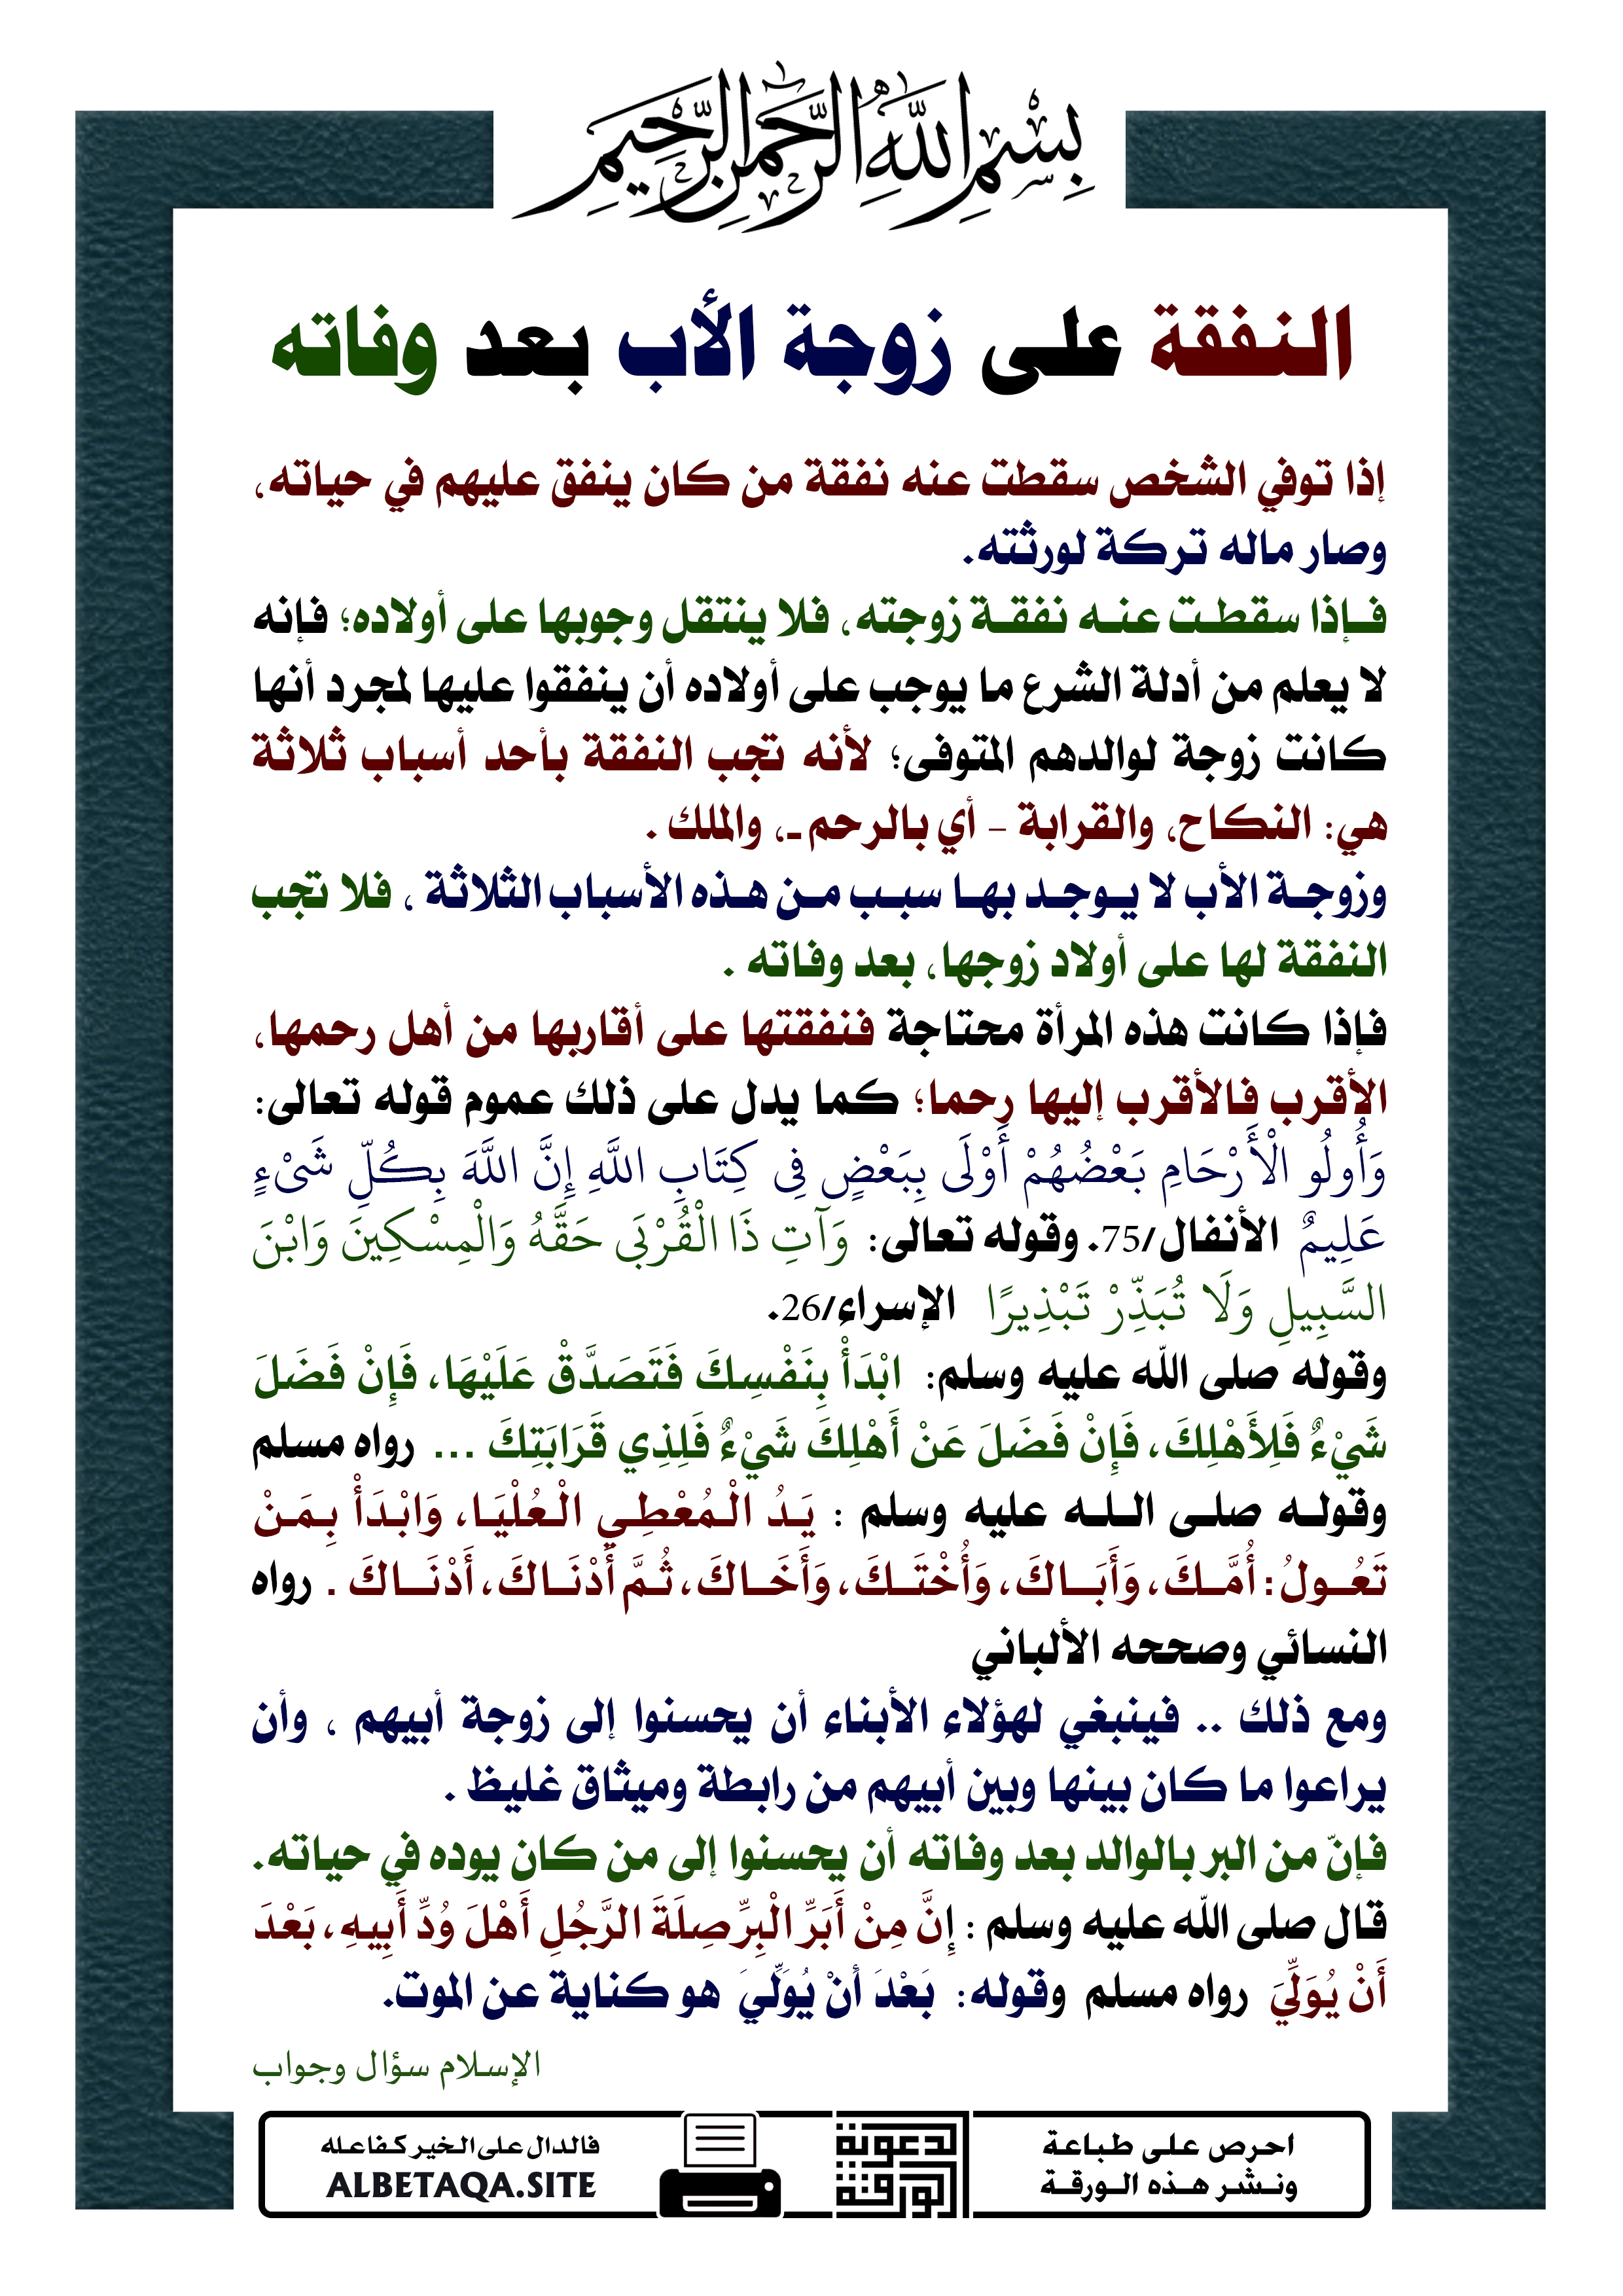 بِسْمِ اللَّهِ الرَّحْمَنِ الرَّحِيمِ
النفقة على زوجة الأب بعد وفاته
إذا توفي الشخص سقطت عنه نفقة من كان ينفق عليهم في حياته،
وصار ماله تركة لورثته.
فإذا سقطت عنه نفقة زوجته، فلا ينتقل وجوبها على أولاده؛ فإنه
لا يعلم من أدلة الشرع ما يوجب على أولاده أن ينفقوا عليها لمجرد أنها
كانت زوجة لوالدهم المتوفى؛ لأنه تجب النفقة بأحد أسباب ثلاثة
هي: النكاح، والقرابة – أي بالرحم ـ، والملك .
وزوجة الأب لا يوجد بها سبب من هذه الأسباب الثلاثة ، فلا تجب
النفقة لها على أولاد زوجها، بعد وفاته .
فإذا كانت هذه المرأة محتاجة فنفقتها على أقاربها من أهل رحمها،
الأقرب فالأقرب إليها رحما؛ كما يدل على ذلك عموم قوله تعالى:
وَأُولُو الْأَرْحَامِ بَعْضُهُمْ أَوْلَى بِبَعْضٍ فِي كِتَابِ اللَّهِ إِنَّ اللَّهَ بِكُلِّ شَيْءٍ
عَلِيمٌ الأنفال/75. وقوله تعالى: وَآتِ ذَا الْقُرْبَى حَقَّهُ وَالْمِسْكِينَ وَابْنَ
السَّبِيلِ وَلَا تُبَذِّرْ تَبْذِيرًا الإسراء/26.
وقوله صلى الله عليه وسلم: ابْدَأْ بِنَفْسِكَ فَتَصَدَّقْ عَلَيْهَا، فَإِنْ فَضَلَ
شَيْءٌ فَلِأَهْلِكَ، فَإِنْ فَضَلَ عَنْ أَهْلِكَ شَيْءٌ فَلِذِي قَرَابَتِكَ ... رواه مسلم
وقوله صلى الله عليه وسلم : يَدُ الْمُعْطِي الْعُلْيَا، وَابْدَأْ بِمَنْ
تَعُولُ: أُمَّكَ، وَأَبَاكَ، وَأُخْتَكَ، وَأَخَاكَ، ثُمَّ أَدْنَاكَ، أَدْنَاكَ . رواه
النسائي وصححه الألباني
ومع ذلك .. فينبغي لهؤلاء الأبناء أن يحسنوا إلى زوجة أبيهم ، وأن
يراعوا ما كان بينها وبين أبيهم من رابطة وميثاق غليظ .
فإنّ من البر بالوالد بعد وفاته أن يحسنوا إلى من كان يوده في حياته.
قال صلى الله عليه وسلم : إِنَّ مِنْ أَبَرِّ الْبِرِّ صِلَةَ الرَّجُلِ أَهْلَ وُدِّ أَبِيهِ، بَعْدَ
أَنْ يُوَلِّيَ رواه مسلم وقوله: بَعْدَ أَنْ يُوَلِّيَ هو كناية عن الموت.
الإسلام سؤال وجواب
احرص على طباعة
ونشر هذه الورقة
الورقة
الدعوية
فالدال على الخير كفاعله
ALBETAQA.SITE